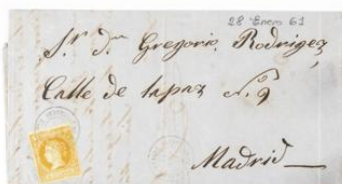 28 Enero 61
Sr. dn. Gregorio Rodrigez
Calle de lapaz N. 9
Madrid